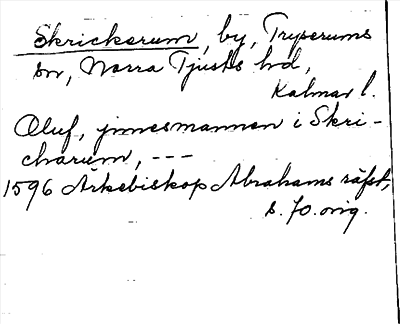 Skrickerum, by, Tryserums
sn, Norra Tjusts hd,
Kalmar l.
Oluf, jnnesmannen i Skri-
charum, ---
1596 Ärkebiskop Abrahams räfst,
s. 70. orig.